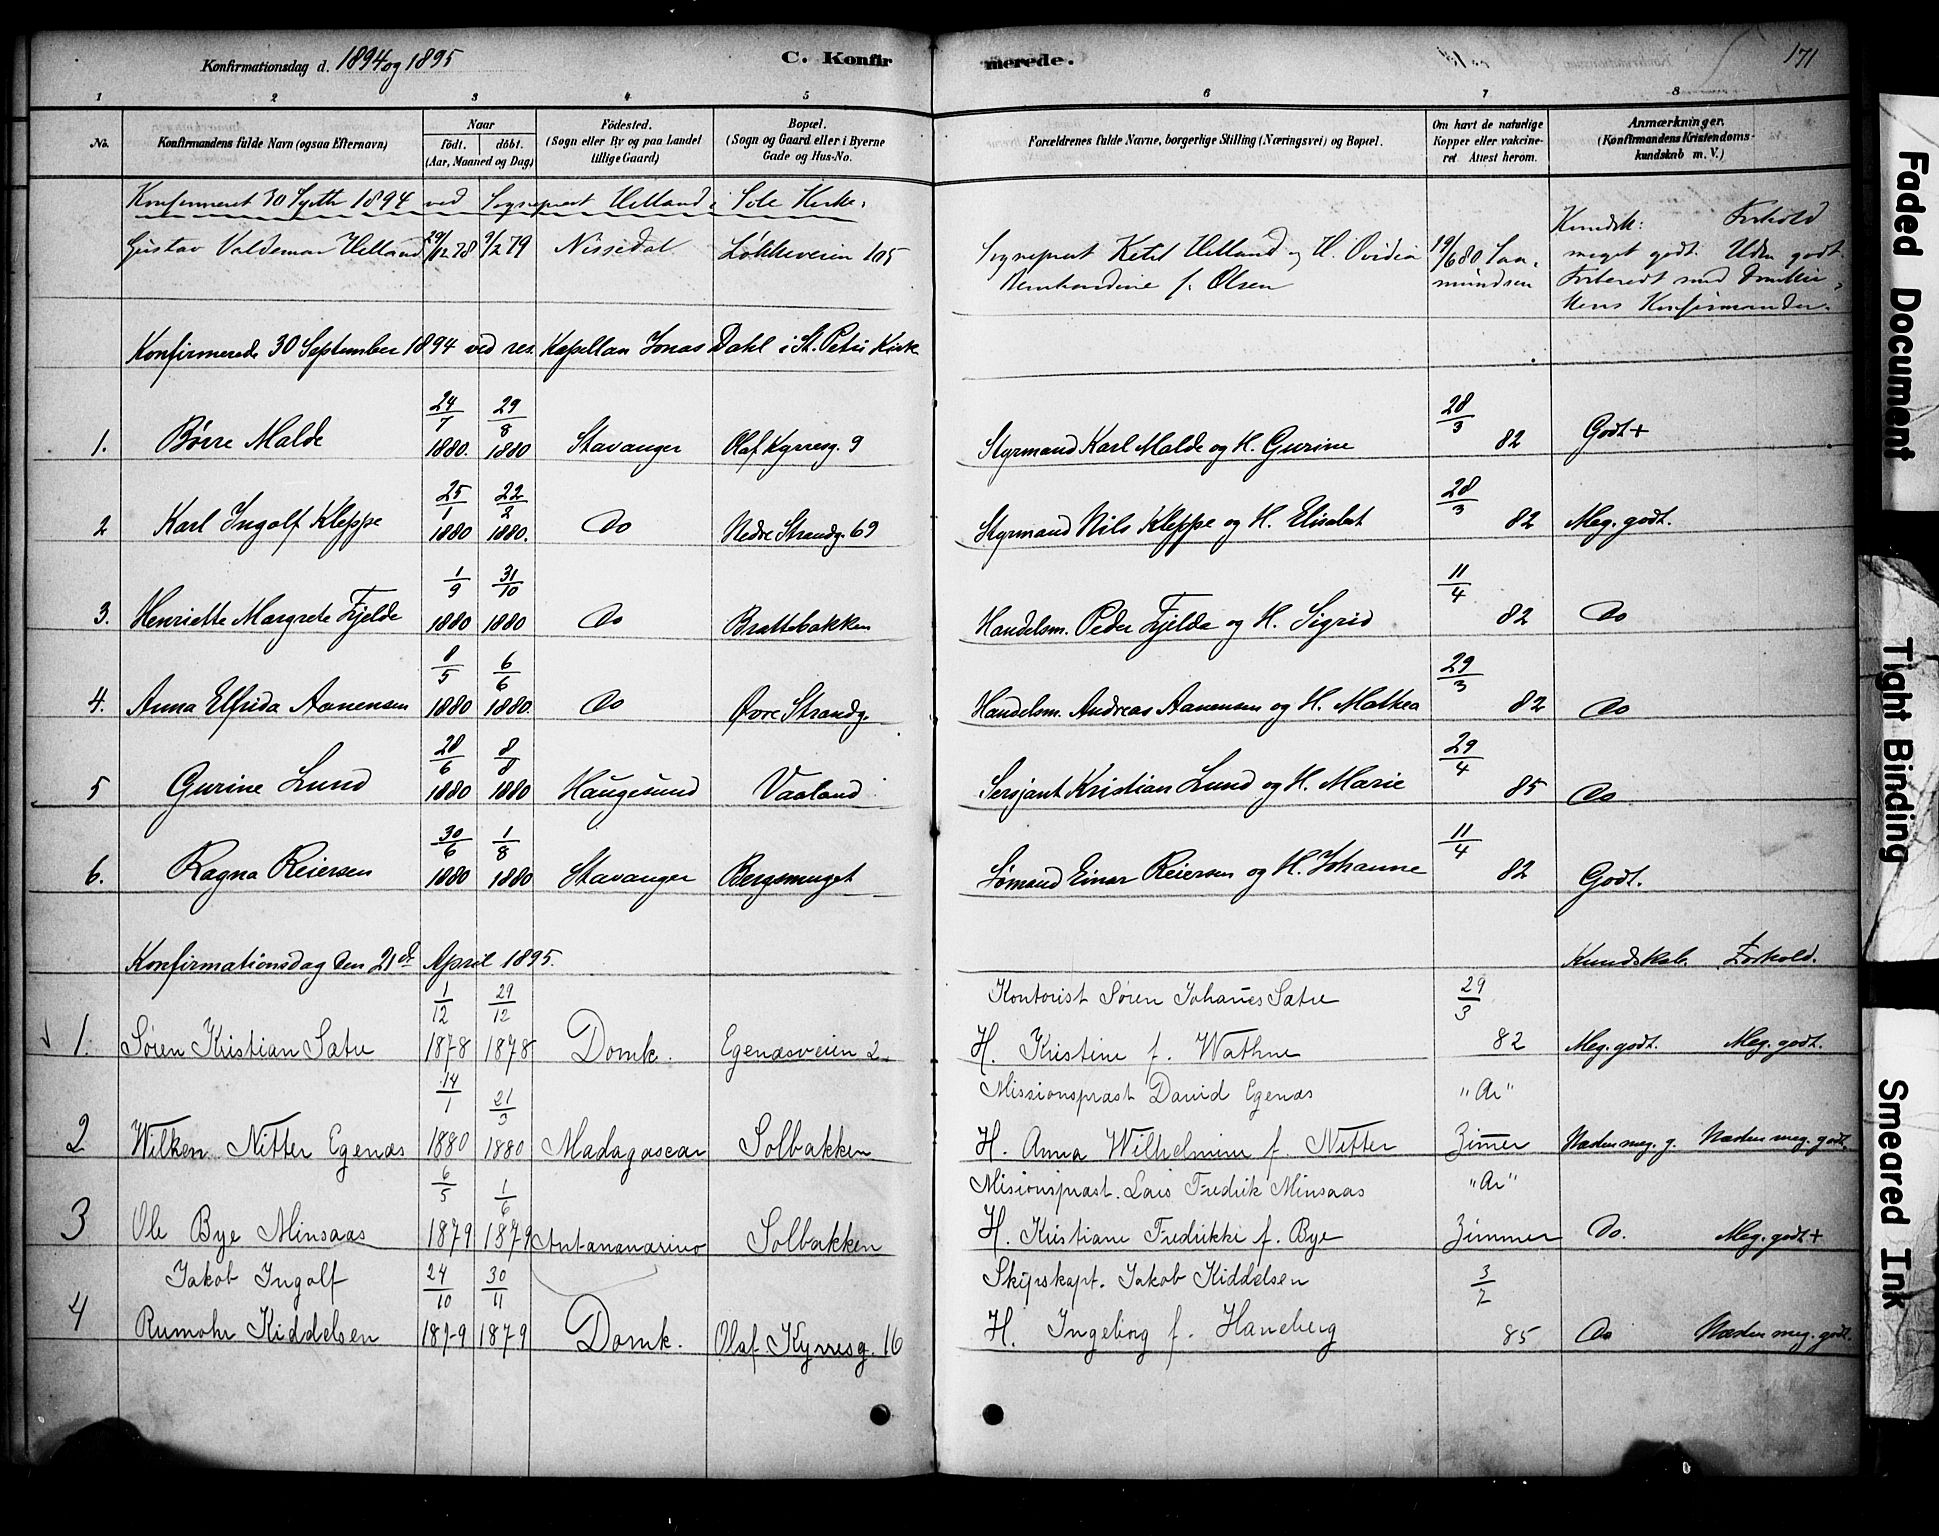 Konfirmationsdag d. 1894 og 1895
C. Konfirmerede.
171
1 2 3 4 5 6 7 8
No.
Konfirmandens fulde Navn (ogsaa Efternavn)
Naar
født. døbt.
(Aar, Maaned og Dag)
Fødested.
(Sogn eller By og paa Landet
tillige Gaard)
Bopæl.
(Sogn og Gaard eller i Byerne
Gade og Hus-No.
Forældrenes fulde Navne, borgerlige Stilling (Næringsvei) og Bopæl.
Om havt de naturlige
Kopper eller vakcine-
ret Attest herom.
Anmærkninger.
(Konfirmandens Kristendoms-
kundskab m. V.)
Konfirmeret 30 Septbr 1894 ved Sognepræst Helland i Sole Kirke.
Kundsk: Forhold
Gustav Valdemar Helland 29/12 78 9/2 79 Nissedal Løkkeveien 105 Sognepræst Ketil Helland og H. Ovidia 19/6 80 meget godt. Uden godt
f. Olsen
Konfirmander.
Konfirmerede 30 September 1894 ved res. Kapellan Jonas Dahl i St. Petri Kirke
1. Børre Malde 24/7 1880. 29/8 1880 Stavanger Olaf Kyrresg. 9 Styrmand Karl Malde og H. Gurine 28/3 82 Godt+
2 Karl Ingolf Kleppe 25/1 1880 22/2 1880. Do Nedre Strandg. 69 Styrmand Nils Kleppe og H. Elisabet 28/3 82 Meg. godt.
3. Henriette Margrete Fjelde 1/9 1880 31/10 1880 Do Brattebakken Handelsm. Peder Fjelde og H. Sigrid 11/4 82 Do
4. Anna Elfrida Aanensen 8/5 1880 6/6 1880 Do Øvre Strandg. Handelsm. Andreas Aanensen og H. Mathea 29/3 82 Do
5 Gurine Lund 28/6 1880 8/8 1880 Haugesund Vaaland Sersjant Kristian Lund og H. Marie 29/4 85 Do
6. Ragna Reiersen 30/6 1880 1/8 1880 Stavanger Bergsmuget Sømand Einar Reiersen og H. Johanne 11/4 82 Godt.
Konfirmationsdag den 21de April 1895.
Kundskab. Forhold.
Kontorist Søren Johanes Satre
1. Søren Kristian Satre 1/12 1878 29/12 1878 Domk. Egenæsveien 2 H. Kristine f. Wathne 29/3 82 Meg. godt. Meg. godt.
Missionspræst David Egenæs "Ar"
2 Wilken Nitter Egenæs 14/1 1880 21/3 1880 Madagascar Solbakken H. Anna Wilhelmine f. Nitter Zimer Næsten meg. g. Næsten meg. godt.
Misionspræst. Lars Fredrik Minsaas "Ar"
3 Ole Bye Minsaas 6/5 1879 1/6 1879 Antananarivo Solbakken H. Kristiane Fredrikke f. Bye Zimmer Do. Meg. godt+
Jakob Ingolf 24/10 30/11 Skipskapt. Jakob Kiddelsen 3/2
4 Rumohr Kiddelsen 1879 1879 Domk. Olaf Kyrresg. 16 H. Ingeborg f. Haneberg 85 Do Næsten meg. godt.
Faded Document
Tight Binding
Smeared Ink